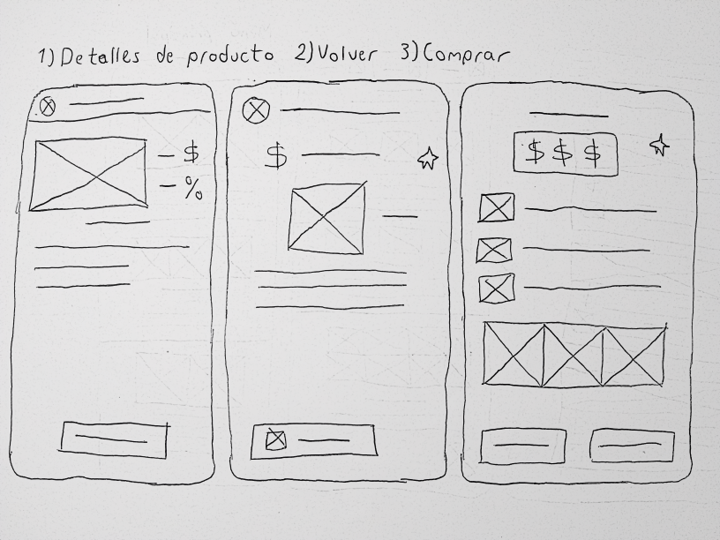 1) Detalles de producto 2) Volver 3) Comprar
- $
- %
$
$ $ $